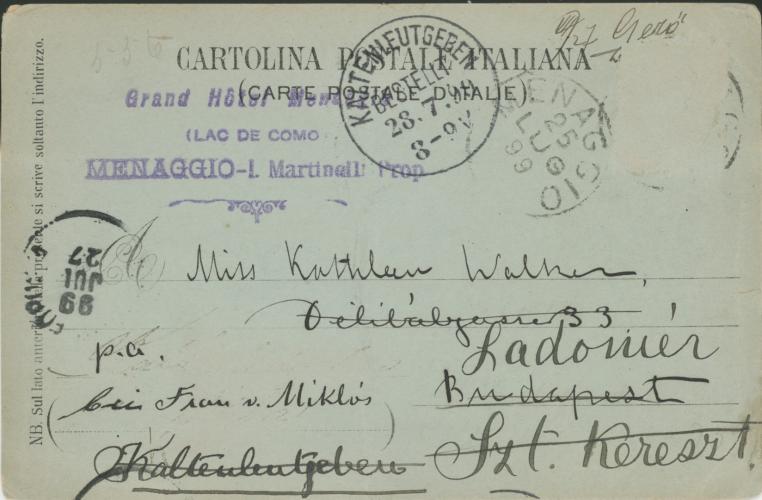 CARTOLINA POSTALE ITALIANA
(CARTE POSTALE D'ITALIE).
Gerő
Grand Hôtel Mena
(LAC DE COMO
MENAGGIO-I. Martinelli Prop
KALTENLEUTGEBEN
BESTELLT
28.7.99
8-9V
MENAGGIO
25
LUG
99
27
JUI
99
NB. Sul lato anteriore della presente si scrive soltanto l'indirizzo.
A
Miss Kathleen Walker,
Délibábgasse 33
p.a.
Ladomér
bei Frau v. Miklós
Budapest
Kaltenleutgeben
Szt. Kereszt.